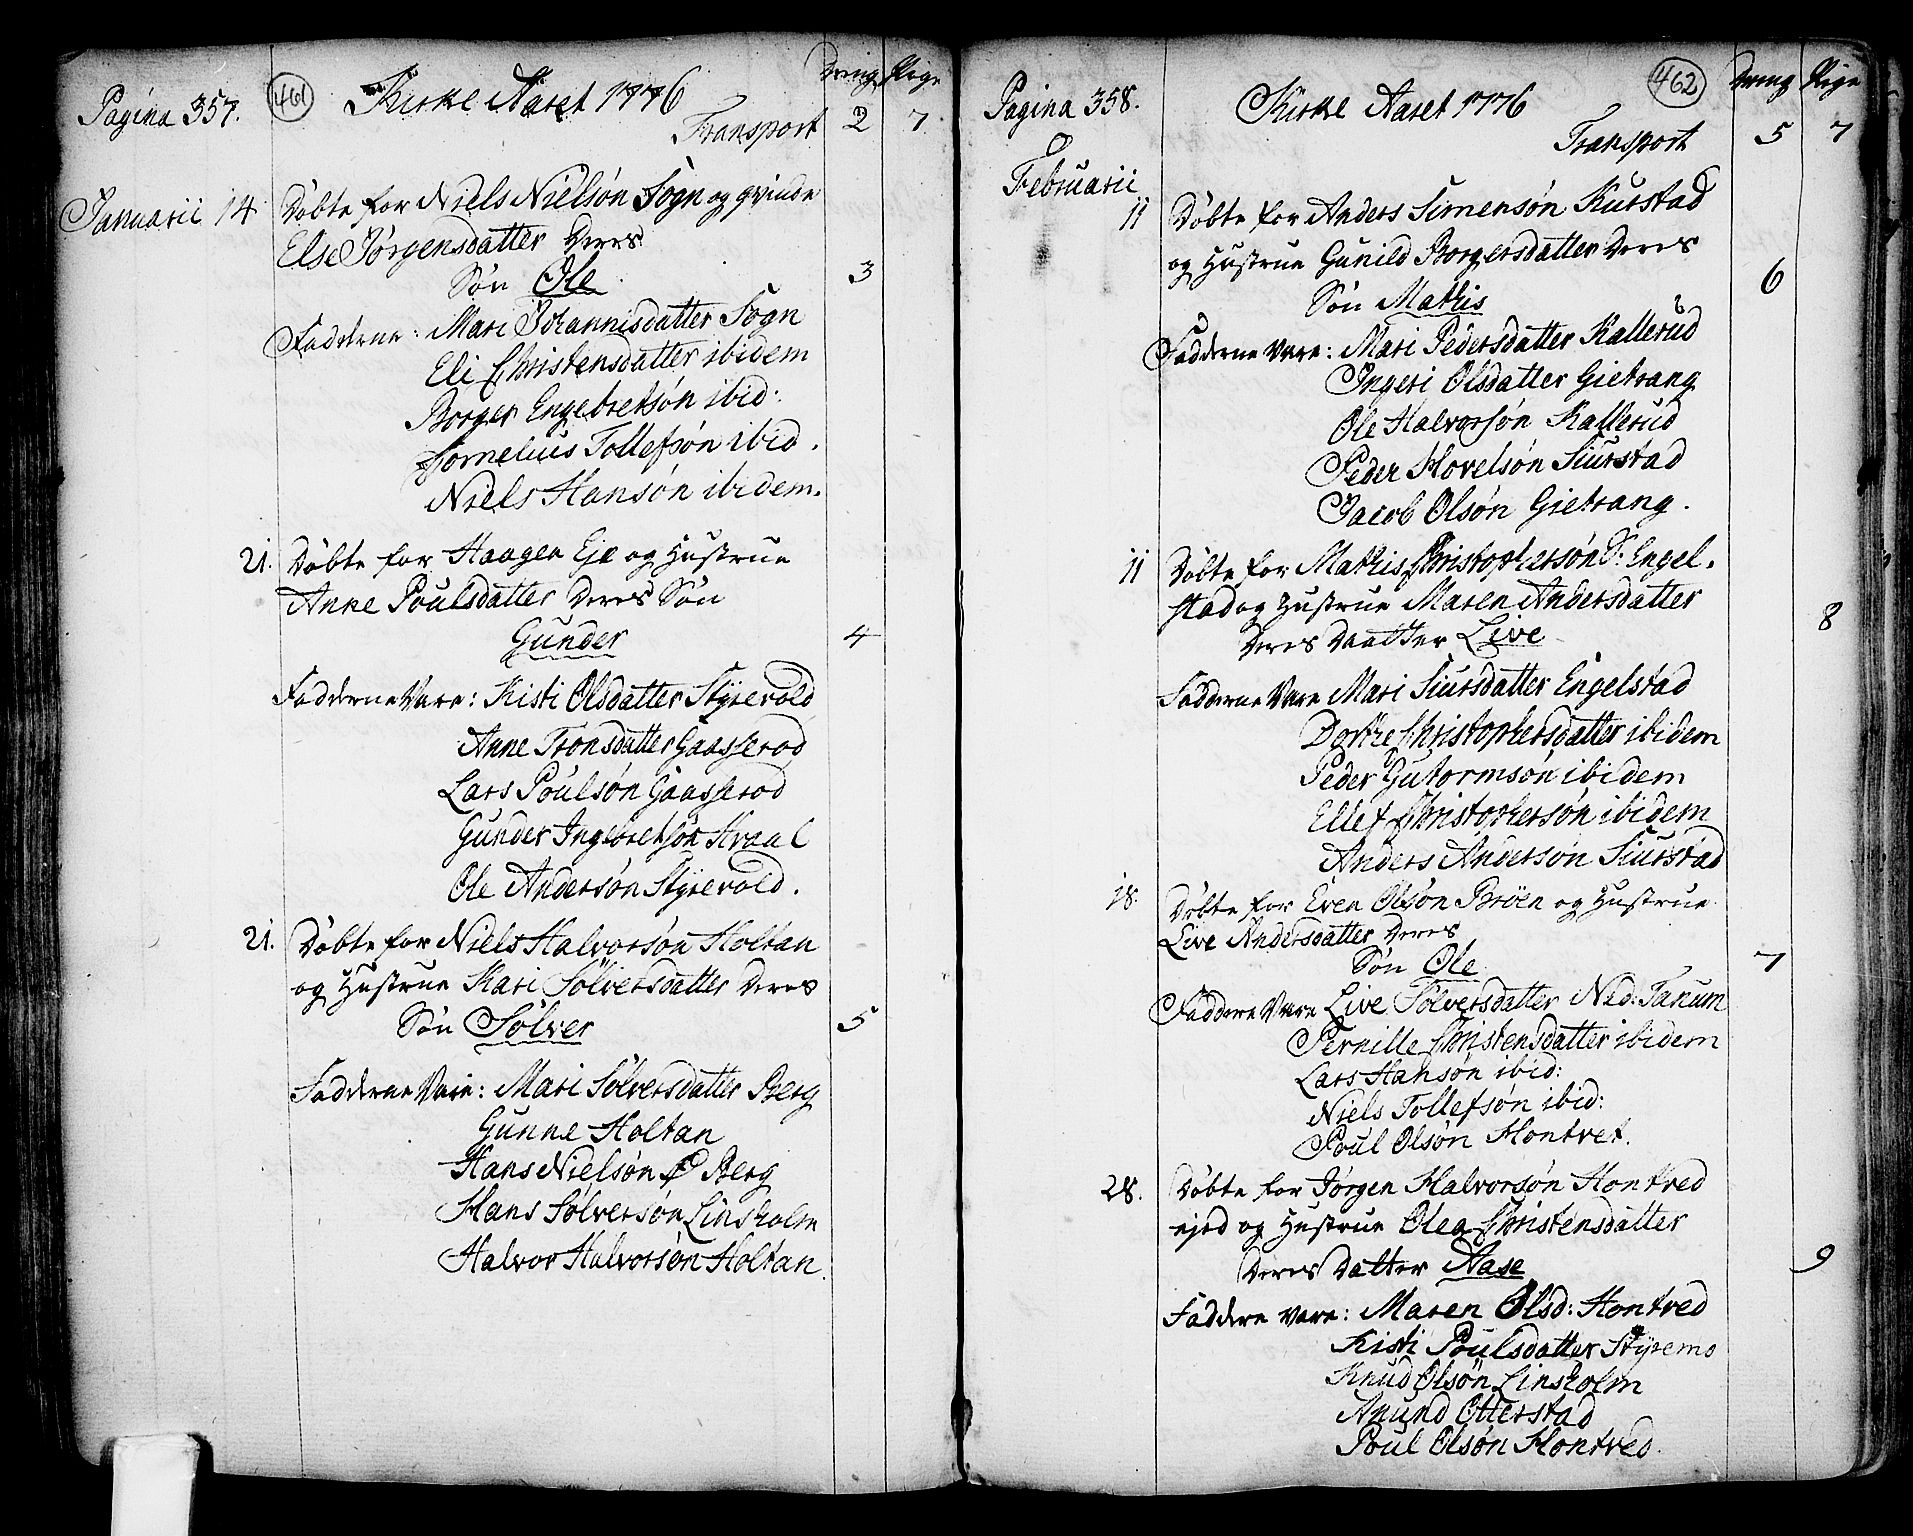 Pagina 357.
461
Kirke Aaret 1776
Dreng Pige
Transport 2 7
Januarii 14 Döbte for Niels Nielsön Sogn og qvinde
Else Jörgensdatter deres
Sön Ole 3
Fadderne: Mari Johannisdatter Sogn
Eli Christensdatter ibidem
Borger Engebretsön ibid:
Cornelius Tollefsön ibid.
Niels Hansön ibidem.
21. Döbte for Haagen Eje og Hustrue
Anne Poulsdatter deres Sön
Gunder 4
Fadderne Vare: Kisti Olsdatter Styrevold
Anne Tronsdatter Gaasserod
Lars Poulsön Gaasserod
Gunder Ingebretsön Kraal
Ole Andersön Styrevold.
21. Döbte for Niels Halvorsön Holtan
og Hustrue Kari Sölversdatter deres
Sön Sölver 5
Fadderne Vare: Mari Sölversdatter Berg
Gunne Holtan
Hans Nielsön Berg
Hans Sölversön Linsholm
Halvor Halvorsön Holtan.
Pagina 358.
462
Kirke Aaret 1776
Dreng Pige
Transport 5 7
Februarii
11 Döbte for Anders Simensön Kurstad
og Hustrue Gunild Borgersdatter deres
Sön Mathis 6
Fadderne Vare: Mari Pedersdatter Kallerud
Ingeri Olsdatter Gietrang
Ole Halvorsön Kallerud
Peder Hovelsön Siurstad
Jacob Olsön Gietrang.
11 Döbte for Mathis Christophersön S. Engel-
stad og Hustrue Maren Andersdatter
deres Daatter Live 8
Fadderne Vare Mari Siursdatter Engelstad
Dorthe Christophersdatter ibidem
Peder Gutormsön ibidem
Ellef Christophersön ibidem
Anders Andersön Siurstad
18. Döbte for Even Olsön Bröen og Hustrue
Live Andersdatter deres
Sön Ole 7
Faddere Vare Live Sölversdatter Nad: Tanum
Pernille Christensdatter ibidem
Lars Hansön ibid:
Niels Tollefsön ibid:
Poul Olsön Hontvet.
28. Döbte for Jörgen Halvorsön Hontved
ejed og Hustrue Olea Christensdatter
deres Datter Aase 9
Faddere Vare: Maren Olsd: Hontved
Kisti Poulsdatter Styremo
Knud Olsön Linsholm
Anund Otterstad
Poul Olsön Hontved.